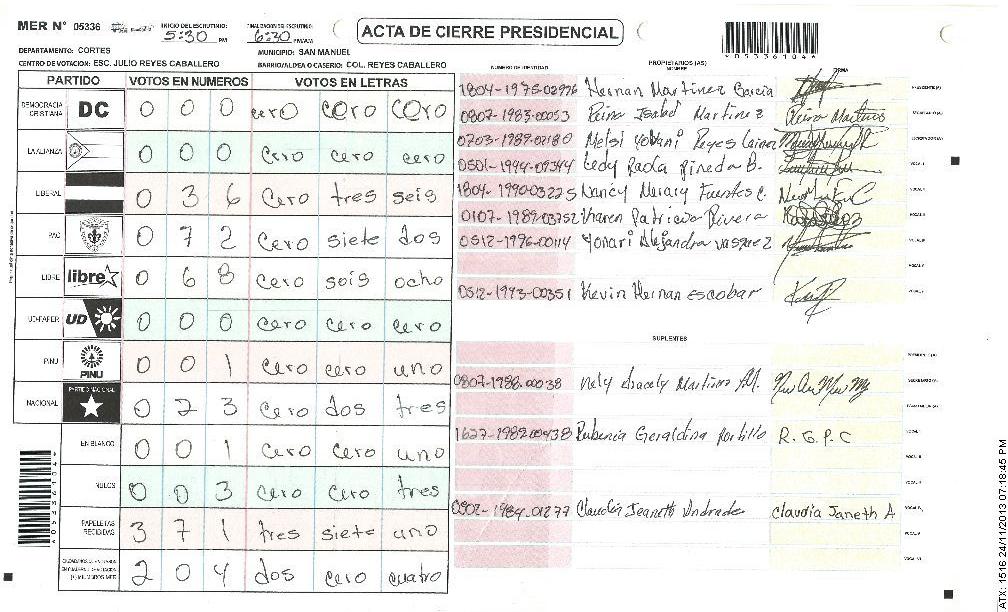 MER N° 05336 INICIO DEL ESCRUTINIO: 5:30 PM FINALIZACION DEL ESCRUTINIO: 6:30 PM/AM ACTA DE CIERRE PRESIDENCIAL *05336104*
DEPARTAMENTO: CORTES MUNICIPIO: SAN MANUEL
CENTRO DE VOTACION: ESC. JULIO REYES CABALLERO BARRIO/ALDEA O CASERIO: COL. REYES CABALLERO
PARTIDO VOTOS EN NUMEROS VOTOS EN LETRAS
DEMOCRACIA CRISTIANA DC 0 0 0 cero cero cero
LA ALIANZA 0 0 0 cero cero cero
LIBERAL 0 3 6 Cero tres seis
PAC 0 7 2 Cero siete dos
LIBRE libre 0 6 8 Cero seis ocho
UD-FAPER UD 0 0 0 cero cero cero
PINU PINU 0 0 1 cero cero uno
NACIONAL PARTIDO NACIONAL 0 2 3 Cero dos tres
EN BLANCO 0 0 1 Cero Cero uno
NULOS 0 0 3 Cero Cero tres
PAPELETAS RECIBIDAS 3 7 1 tres siete uno
2 0 4 dos cero cuatro
NUMERO DE IDENTIDAD PROPIETARIOS (AS) NOMBRE FIRMA
1804-1975-02976 Hernan Martinez Garcia PRESIDENTE(A)
0807-1983-00053 Reina Isabel Martinez Reina Martinez SECRETARIO(A)
0703-1989-02180 Melsi Yobani Reyes Lainez ESCRUTADOR(A)
0501-1994-09344 Ledy Paola Pineda B. VOCAL I
1804-1990-03225 Nancy Merary Fuentes C. VOCAL II
0107-1989-03752 Karen Patricia Rivera VOCAL III
0512-1996-00114 Yonari Alejandra Vasquez VOCAL IV
VOCAL V
0512-1993-00351 Kevin Hernan escobar
SUPLENTES
PRESIDENTE(A)
0807-1988-00038 Nely Aracely Martinez M. SECRETARIO(A)
ESCRUTADOR(A)
1627-1989-00438 Rubenia Geraldina Portillo R.G.P.C VOCAL I
VOCAL II
VOCAL III
0502-1984-01277 Claudia Jeaneth Andrade Claudia Janeth A VOCAL IV
VOCAL V
VOCAL VI
*05336104*
ATX: 1516 24/11/2013 07:18:45 PM